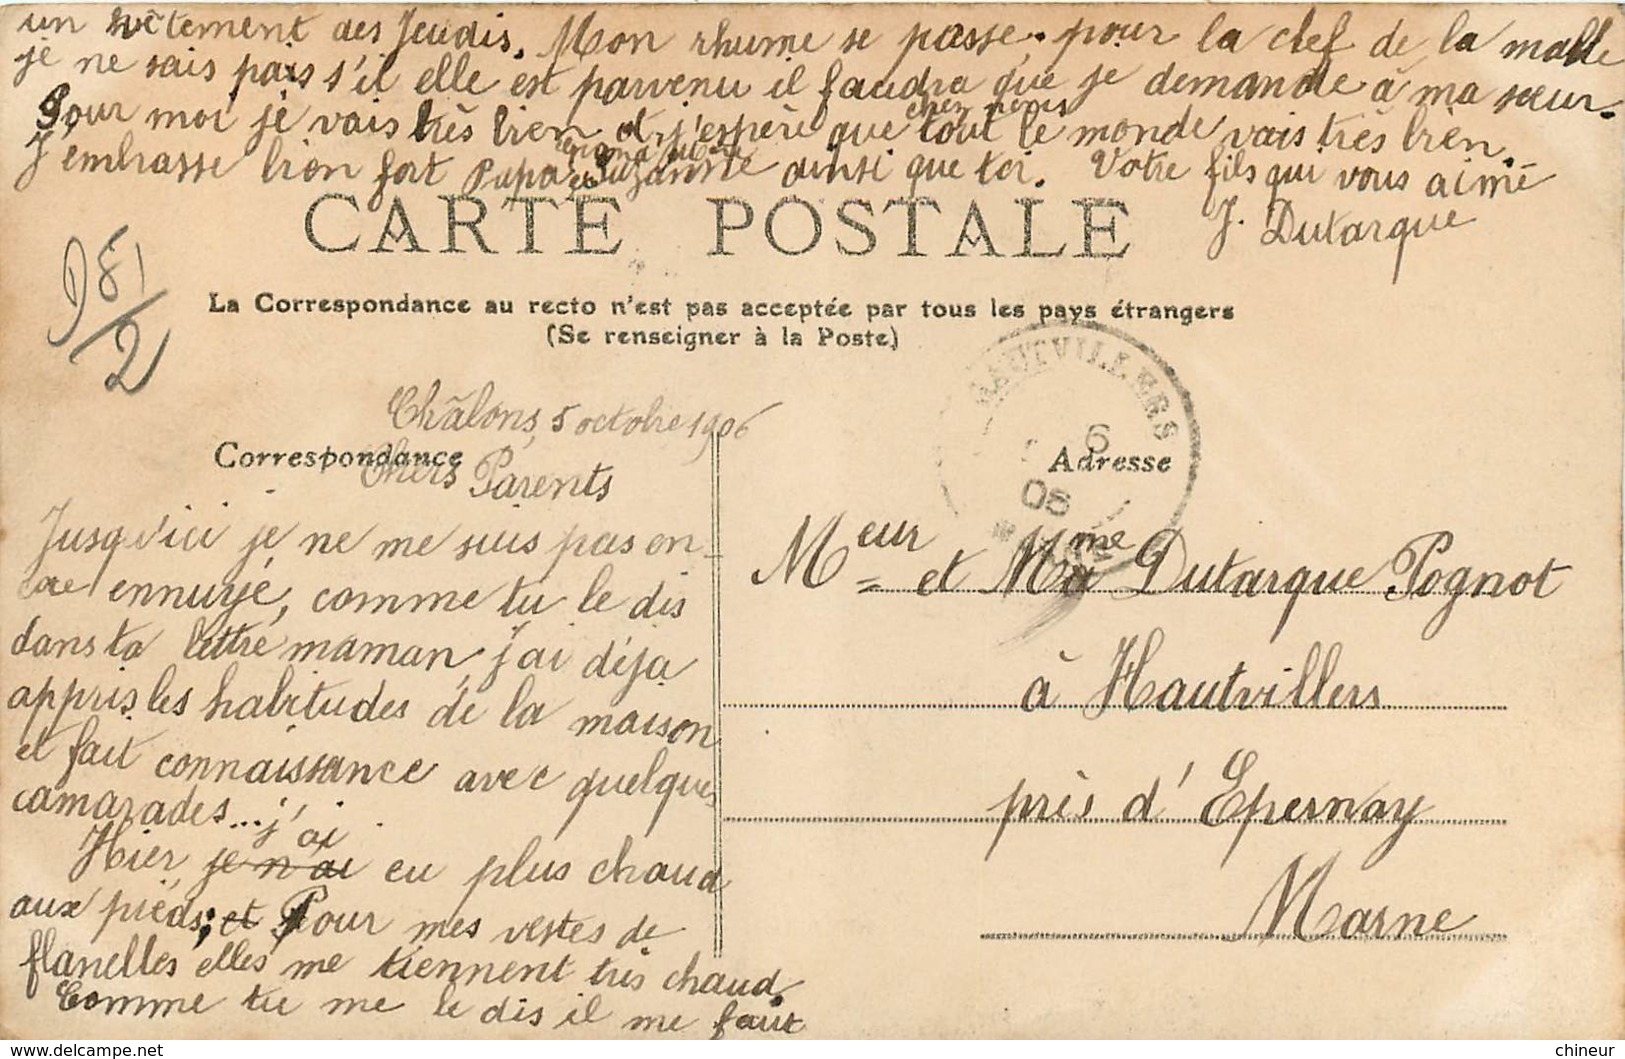 un vêtement des Jeudis. Mon rhume se passe. pour la clef de la malle
je ne sais pas s'il elle est parvenu il faudra que je demande à ma sœur.
Pour moi je vais très bien et j'espère que chez nous tout le monde vais très bien.
J'embrasse bien fort Papa et Suzanne ainsi que toi. Votre fils qui vous aime
J. Dutarque
CARTE POSTALE
La Correspondance au recto n'est pas acceptée par tous les pays étrangers
(Se renseigner à la Poste)
HAUTVILLERS
6
06
Châlons, 5 octobre 1906
Correspondance
Chers Parents
Jusqu'ici je ne me suis pas en-
core ennuyé, comme tu le dis
dans ta lettre maman, j'ai déja
appris les habitudes de la maison
et fait connaissance avec quelques
camarades... j'ai
Hier, je n'ai eu plus chaud
aux pieds; et Pour mes vestes de
flanelles elles me tiennent très chaud.
Comme tu me le dis il me faut
Adresse
Meur et Mme Dutarque Pognot
à Hautvillers
près d'Epernay
Marne
chineur